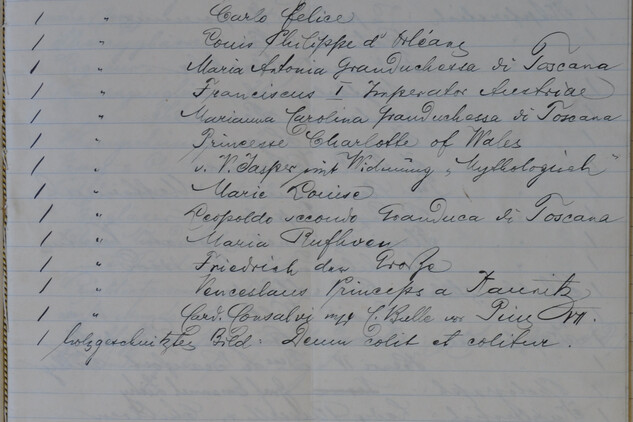 1 " Carlo Felice
1 " Louis Philippe d'Orléans
1 " Maria Antonia Granduchessa di Toscana
1 " Franciscus I Imperator Austriae
1 " Marianna Carolina Granduchessa di Toscana
1 " Princesse Charlotte of Wales
1 " v. V. Jasper mit Widmung „Mythologisch"
1 " Marie Louise
1 " Leopoldo secondo Granduca di Toscana
1 " Maria Ruthven
1 " Friedrich der Große
1 " Venceslaus Princeps a Kaunitz
1 " Card. Consalvi Bulle vor Pius VII.
1 holzgeschnitztes Bild: Deum colit et colitur.